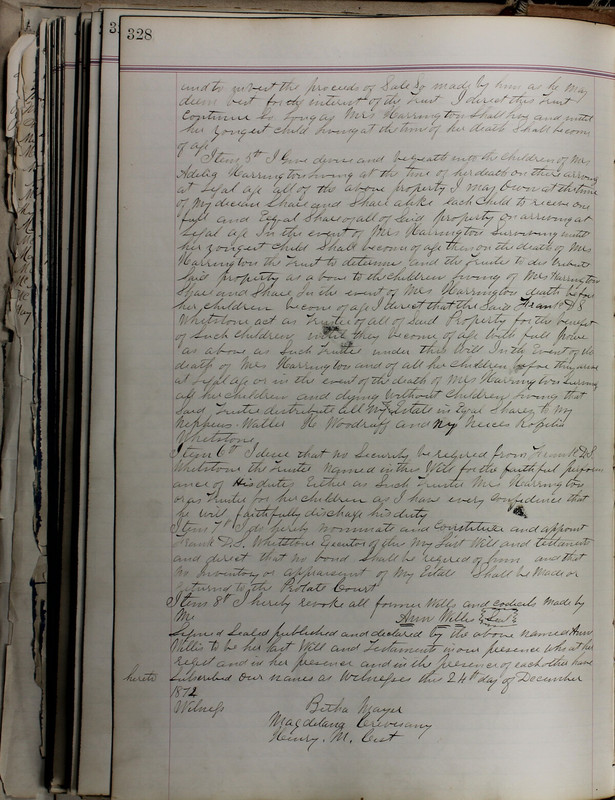 3
328
and to invest the proceeds of Sale So made by him as he May
deem best for the interest of the Trust I direct this Trust
Continue so long as Mrs Harrington Shall live and until
her yongest Child living at the time of her death Shall become
of age
Item 5th I Give devise and bequeath unto the Children of Mrs
Harrington living at the time of her death on their arriving
at Legal age all of the above property I may Own at the time
of My decease Share and Share alike each Child to receive one
full and Equal Share of all of Said property on arriving at
Legal age In the event of Mrs Harrington Surviving until
her yongest Child Shall become of age then on the death of Mrs
Harrington the Trust to determine and the Trustee to distribute
Said property as above to the Children living of Mrs Harrington
Share and Share In the event of Mrs Harrington death before
her Children become of age I direct that the Said Frank D S
Whetstone act as Trustee of all of Said Property for the benefit
of Such Children until they become of age With full power
as above as Such Trustee under this Will In the event of the
death of Mrs Harrington and of all her Children before they arrive
at Legal age or in the event of the death of Mrs Harrington Surviving
all her Children and dying without Children living that
Said Trustee distribute all My Estate in Equal Shares to my
Nephews Woodruff and My Neices
Whetstone
Item 6th I desire that no Security be reqired from Frank D.S.
Whetstone the Trustee Named in this Will for the faithful preform
ance of His duties Either as Such Trustee Mrs Harrington
or as Trustee for her Children as I have every Confidence that
he will faithfully discharge his duty
Item 7th I do hereby nominate and Constitute and appoint
Frank D.S. Whetstone Executor of this My Last Will and testament
and direct that no bond Shall be reqired of him and that
No Inventory or appraisment of My Estate Shall be Made or
returned to the Probate Court
Item 8th I hereby revoke all former Wills and codicils made by
Me Ann Willis Seal
Signed Sealed published and declared by the above named Ann
Willis to be her last Will and Testament in our presence who at her
reqest and in her presence and in the presence of each other have
hereto Subscribed Our names as Witnesses this 24th day of December
1872
Witness Bertha Mayer
Magdelana
Henry. M. Cist